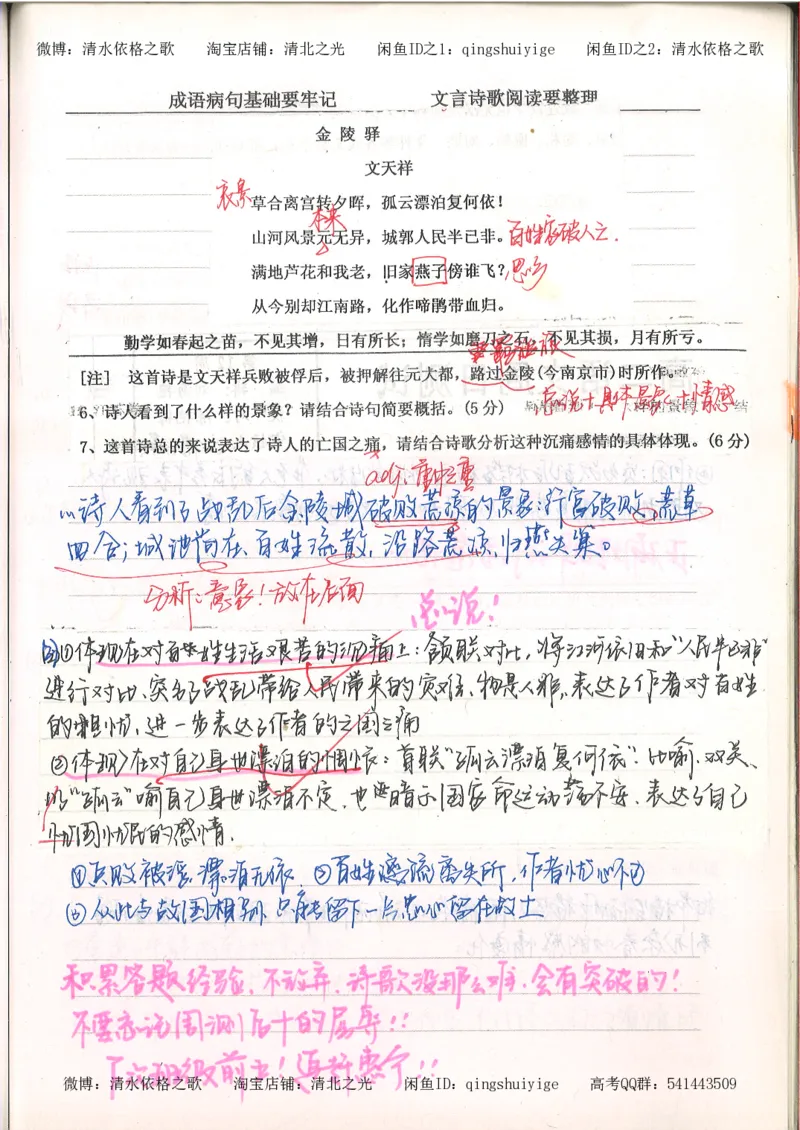 微博：清水依格之歌　　淘宝店铺：清北之光　　闲鱼ID之1：qingshuiyige　　闲鱼ID之2：清水依格之歌
成语病句基础要牢记　　文言诗歌阅读要整理
金 陵 驿
文天祥
衣景
草合离宫转夕晖，孤云漂泊复何依！
本来
山河风景元无异，城郭人民半已非。百姓家破人亡.
满地芦花和我老，旧家燕子傍谁飞？
从今别却江南路，化作啼鹃带血归。
勤学如春起之苗，不见其增，日有所长；惰学如磨刀之石，不见其损，月有所亏。
[注]　这首诗是文天祥兵败被俘后，被押解往元大都，路过金陵(今南京市)时所作。
6、诗人看到了什么样的景象？请结合诗句简要概括。(5 分)　总说+具体景象+情感
7、这首诗总的来说表达了诗人的亡国之痛，请结合诗歌分析这种沉痛感情的具体体现。(6 分)
重中之重
(1)诗人看到了战乱后金陵城破败荒凉的景象:行宫破败,荒草
四合;城池尚在,百姓流散,沿路荒凉,归燕失巢。
分析:意象!放在后面
总说!
(2)①体现在对百姓生活艰苦的沉痛上:颔联对比,将江河依旧和"人民半已非"
进行对比,突出了战乱带给人民带来的灾难,物是人非,表达了作者对百姓
的担忧,进一步表达了作者的亡国之痛
②体现在对自己身世漂泊的惆怅:首联"孤云漂泊复何依".比喻.双关、
以"孤云"喻自己身世漂泊不定,也暗示国家命运动荡不安.表达了自己
忧国忧民的感情.
①兵败被俘,漂泊无依.②百姓流离失所,作者忧心不已
③从此与故国相别,只能留下一片忠心留在故土
积累答题经验,不放弃,诗歌没那么难,会有突破的!
不要忘记周测后十的屈辱!!
微博：清水依格之歌　　淘宝店铺：清北之光　　闲鱼ID：qingshuiyige　　高考QQ群：541443509